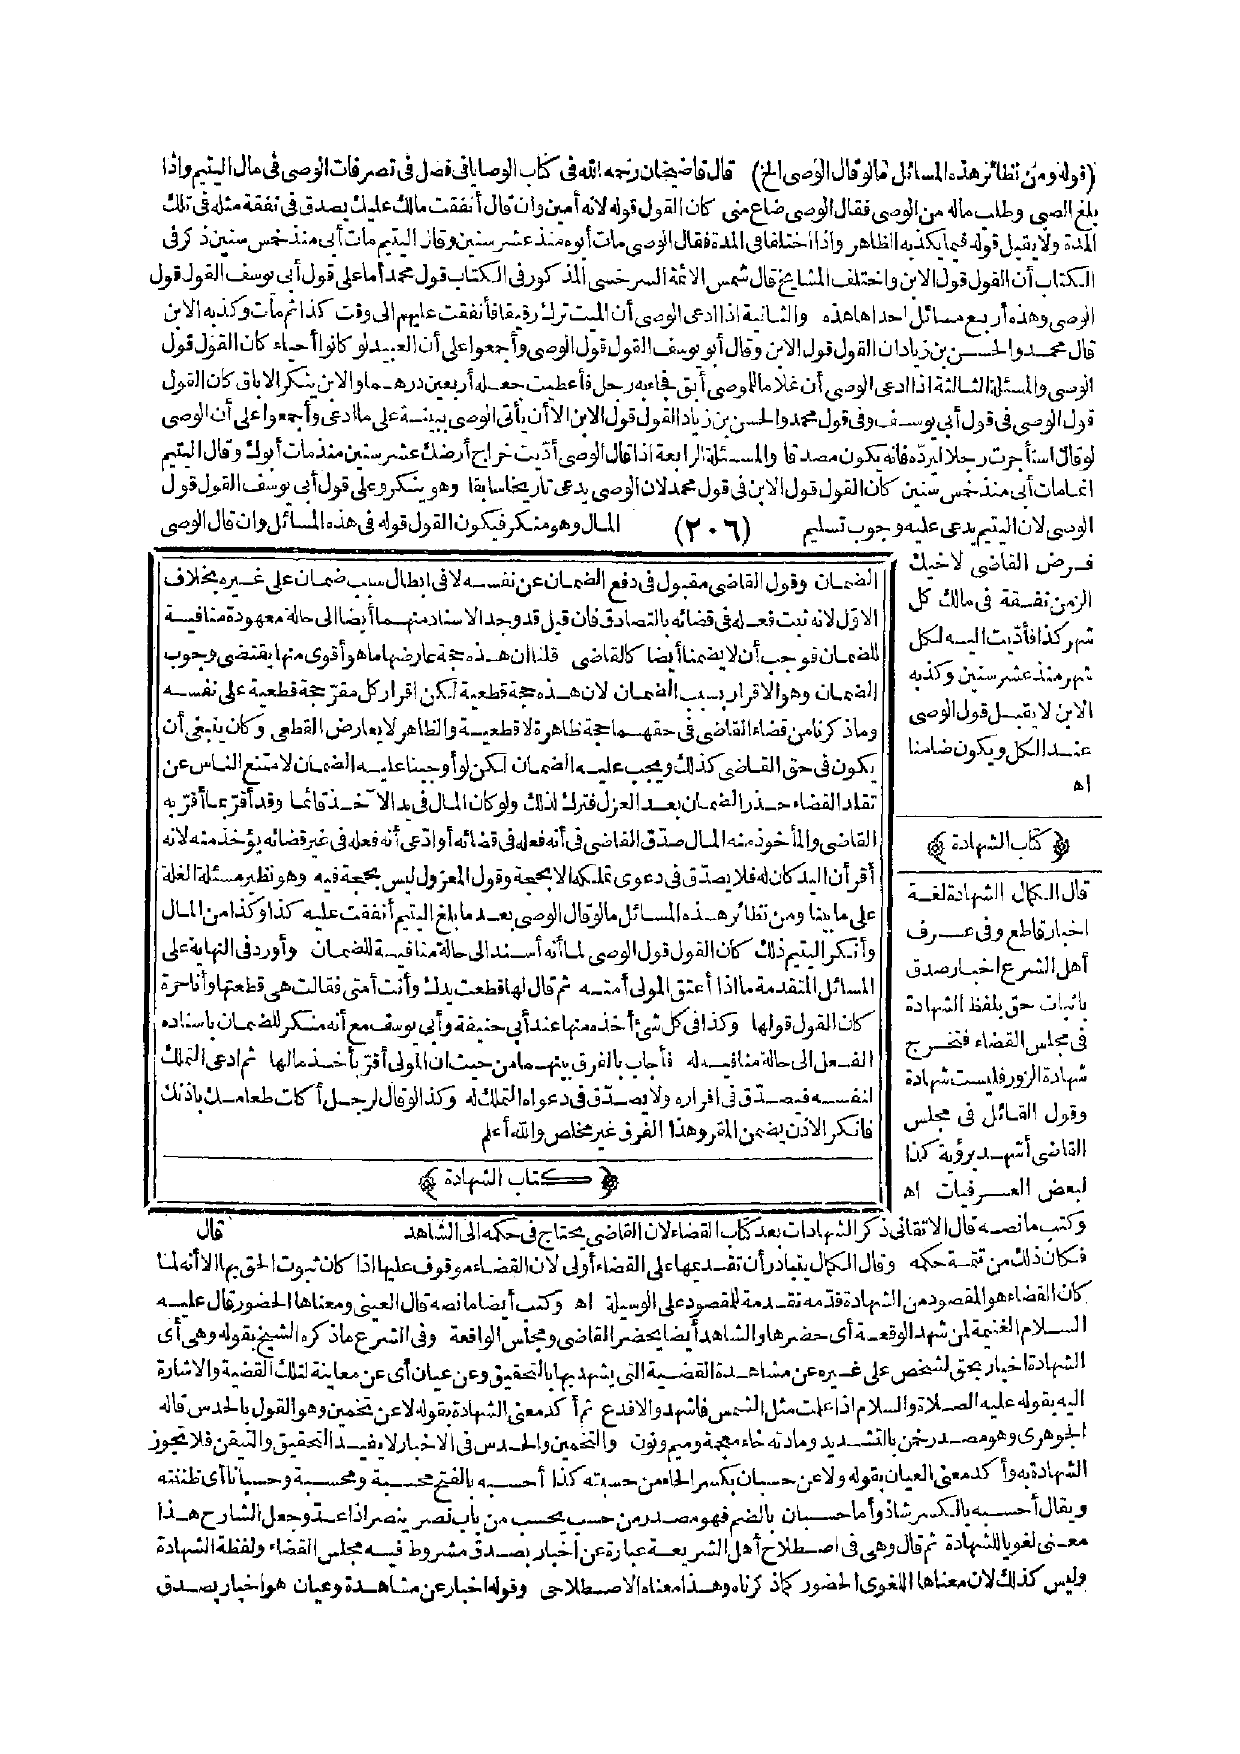 (قوله ومن نظائر هذه المسائل مالو قال الوصى الخ) قال قاضيخان رحمه الله فى كتاب الوصايا فى فصل فى تصرفات الوصى فى مال اليتيم واذا
بلغ الصبى وطلب ماله من الوصى فقال الوصى ضاع منى كان القول قوله لانه أمين وان قال أنفقت مالك عليك يصدق فى نفقة مثله فى تلك
المدة ولا يقبل قوله فيما يكذبه الظاهر واذا اختلفا فى المدة فقال الوصى مات أبوه منذ عشر سنين وقال اليتيم مات أبى منذ خمس سنين ذكر فى
الكتاب أن القول قول الابن واختلف المشايخ قال شمس الائمة السرخسى المذكور فى الكتاب قول محمد أما على قول أبى يوسف القول قول
الوصى وهذه أربع مسائل احداها هذه والثانية اذا ادعى الوصى أن الميت ترك رقيقا فأنفقت عليهم الى وقت كذا ثم مات وكذبه الابن
قال محمد والحسن بن زياد ان القول قول الابن وقال أبو يوسف القول قول الوصى وأجمعوا على أن العبيد لو كانوا أحياء كان القول قول
الوصى والمسئلة الثالثة اذا ادعى الوصى أن غلاما للوصى أبق فجاء به رجل فأعطيت جعله أربعين درهما والابن ينكر الاباق كان القول
قول الوصى فى قول أبى يوسف وفى قول محمد والحسن بن زياد القول قول الابن الا أن يأتى الوصى ببينة على ما ادعى وأجمعوا على أن الوصى
لو قال استأجرت رجلا ليرده فانه يكون مصدقا والمسئلة الرابعة اذا قال الوصى أديت خراج أرضك عشر سنين منذ مات أبوك وقال اليتيم
انما مات أبى منذ خمس سنين كان القول قول الابن فى قول محمد لان الوصى يدعى تاريخا سابقا وهو ينكر وعلى قول أبى يوسف القول قول
الوصى لان اليتيم يدعى عليه وجوب تسليم (٢٠٦) المال وهو منكر فيكون القول قوله فى هذه المسائل وان قال الوصى
فرض القاضى لاخيك
الزمن نفقة فى مالك كل
شهر كذا فأديت اليه لكل
شهر منذ عشر سنين وكذبه
الابن لا يقبل قول الوصى
عند الكل ويكون ضامنا
اه
﴿كتاب الشهادة﴾
قال الكمال الشهادة لغة
اخبار قاطع وفى عرف
أهل الشرع اخبار صدق
باثبات حق بلفظ الشهادة
فى مجلس القضاء فتخرج
شهادة الزور فليست شهادة
وقول القائل فى مجلس
القاضى أشهد برؤية كذا
لبعض العرفيات اه
الضمان وقول القاضى مقبول فى دفع الضمان عن نفسه لا فى ابطال سبب ضمان على غيره بخلاف
الاول لانه ثبت فعله فى قضائه بالتصادق فان قيل قد وجد الاسناد منهما أيضا الى حالة معهودة منافية
للضمان فوجب أن لا يضمنا أيضا كالقاضى قلنا ان هذه حجة عارضها ما هو أقوى منها يقتضى وجوب
الضمان وهو الاقرار بسبب الضمان لان هذه حجة قطعية لكن اقرار كل مقر حجة قطعية على نفسه
وما ذكرنا من قضاء القاضى فى حقهما حجة ظاهرة لا قطعية والظاهر لا يعارض القطعى وكان ينبغى أن
يكون فى حق القاضى كذلك ويجب عليه الضمان لكن لو أوجبنا عليه الضمان لامتنع الناس عن
تقلد القضاء حذر الضمان بعد العزل فترك لذلك ولو كان المال فى يد الآخذ قائما وقد أقر بما أقر به
القاضى والمأخوذ منه المال صدق القاضى فى أنه فعله فى قضائه أو ادعى أنه فعله فى غير قضائه يؤخذ منه لانه
أقر أن اليد كان له فلا يصدق فى دعوى تملكه الا بحجة وقول المعزول ليس بحجة فيه وهو نظير مسئلة الغلة
على ما بينا ومن نظائر هذه المسائل مالو قال الوصى بعد ما بلغ اليتيم أنفقت عليه كذا وكذا من المال
وأنكر اليتيم ذلك كان القول قول الوصى لما أنه أسند الى حالة منافية للضمان وأورد فى النهاية على
المسائل المتقدمة ما اذا أعتق المولى أمته ثم قال لها قطعت يدك وأنت أمتى فقالت هى قطعتها وأنا حرة
كان القول قولها وكذا فى كل شئ أخذه منها عند أبى حنيفة وأبى يوسف مع أنه منكر للضمان باسناده
الفعل الى حالة منافية له فأجاب بالفرق بينهما من حيث ان المولى أقر بأخذ مالها ثم ادعى التملك
لنفسه فيصدق فى اقراره ولا يصدق فى دعواه التملك له وكذا لو قال لرجل أكلت طعامك باذنك
فانكر الاذن يضمن المقر وهذا الفرق غير مخلص والله أعلم
﴿كتاب الشهادة﴾
وكتب ما نصه قال الاتقانى ذكر الشهادات بعد كتاب القضاء لان القاضى يحتاج فى حكمه الى الشاهد قال
فكان ذلك من تتمة حكمه وقال الكمال يتبادر أن تقديمها على القضاء أولى لان القضاء موقوف عليها اذا كان ثبوت الحق بها الا أنه لما
كان القضاء هو المقصود من الشهادة قدمه تقدمة للمقصود على الوسيلة اه وكتب أيضا ما نصه قال العينى ومعناها الحضور قال عليه
السلام الغنيمة لمن شهد الوقعة أى حضرها والشاهد أيضا يحضر القاضى ومجلس الواقعة وفى الشرع ما ذكره الشيخ بقوله وهى أى
الشهادة اخبار بحق لشخص على غيره عن مشاهدة القضية التى يشهد بها بالتحقيق وعن عيان أى عن معاينة لتلك القضية والاشارة
اليه بقوله عليه الصلاة والسلام اذا علمت مثل الشمس فاشهد والا فدع ثم أكد معنى الشهادة بقوله لا عن تخمين وهو القول بالحدس قاله
الجوهرى وهو مصدر خمن بالتشديد ومادته خاء معجمة وميم ونون والتخمين والحدس فى الاخبار لا يفيد التحقيق والتيقن فلا يجوز
الشهادة به وأكد معنى العيان بقوله ولا عن حسبان بكسر الحاء من حسبته كذا أحسبه بالفتح محسبة ومحسبة وحسبانا أى ظننته
ويقال أحسبه بالكسر شاذ وأما حسبان بالضم فهو مصدر من حسب يحسب من باب نصر ينصر اذا عد وجعل الشارح هذا
معنى لغويا للشهادة ثم قال وهى فى اصطلاح أهل الشريعة عبارة عن اخبار بصدق مشروط فيه مجلس القضاء ولفظة الشهادة
وليس كذلك لان معناها اللغوى الحضور كما ذكرناه وهذا معناه الاصطلاحى وقوله اخبار عن مشاهدة وعيان هو اخبار بصدق